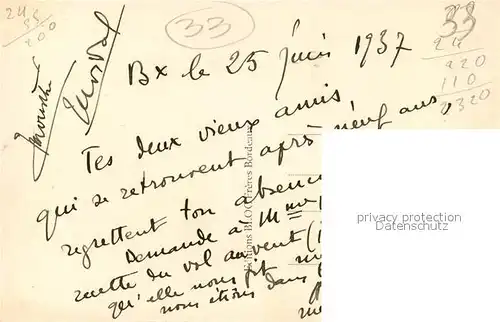 33
33
24
35
200
24
920
110
2320
Bx le 25 juin 1937
Tes deux vieux amis,
qui se retrouvent après neuf ans,
regrettent ton absence
Demande à Mme
recette du vol au vent (
qu'elle nous fit
nous étions dans
Editions BLOC Frères Bordeaux
privacy protection
Datenschutz